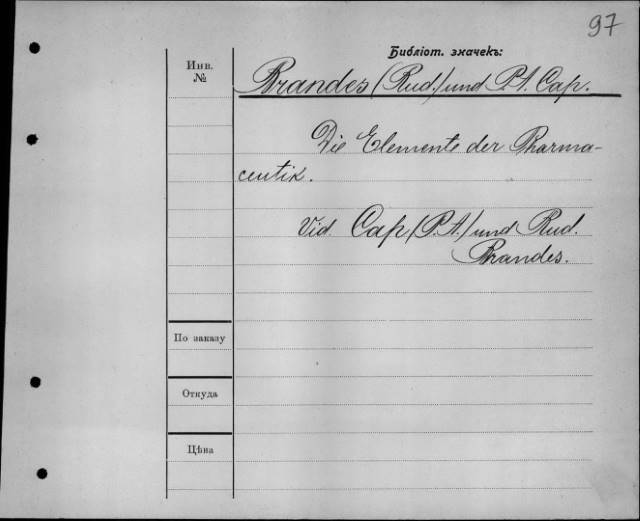 97
Библіот. значекъ:
Инв.
№
Brandes (Rud.) und P. A. Cap.
Die Elemente der Pharma-
ceutik.
Vid. Cap (P. A.) und Rud.
Brandes.
По заказу
Откуда
Цѣна